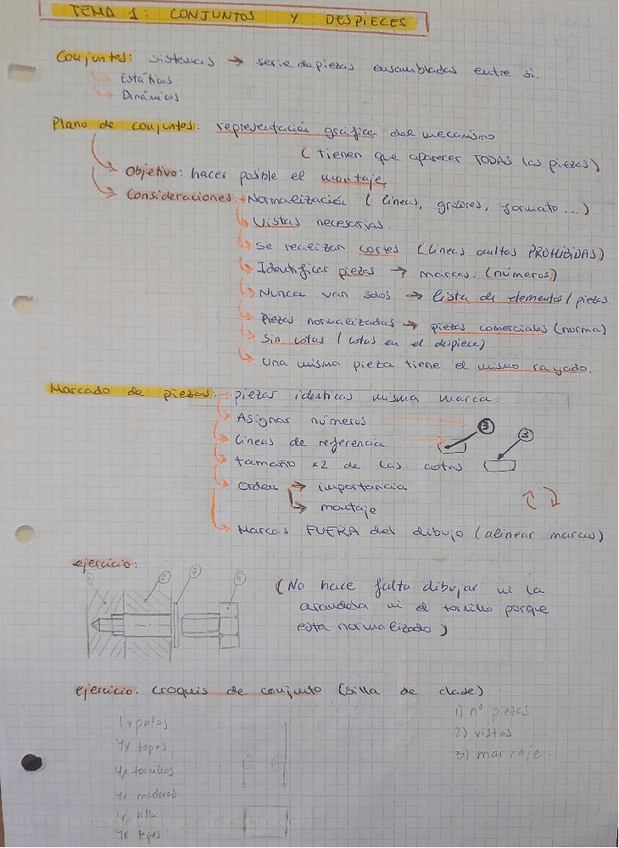 TEMA 1: CONJUNTOS Y DESPIECES
Conjuntos: sistemas → serie de piezas ensambladas entre si.
Estáticos
Dinámicos
Plano de conjuntos: representación gráfica del mecanismo
(tienen que aparecer TODAS las piezas)
Objetivo: hacer posible el montaje
Consideraciones: Normalización (líneas, grosores, formato...)
Vistas necesarias
Se realizan cortes (líneas ocultas PROHIBIDAS)
Identificar piezas → marcas. (números)
Nunca van solos → lista de elementos / piezas
Piezas normalizadas → piezas comerciales (norma)
Sin cotas (cotas en el despiece)
Una misma pieza tiene el mismo rayado.
Marcado de piezas: piezas identicas misma marca.
Asignar números
Líneas de referencia
3
3
tamaño x2 de las cotas
Orden → importancia
→ montaje
Marcas FUERA del dibujo (alinear marcas)
ejercicio:
1 2 3 4
(No hace falta dibujar ni la
arandela ni el tornillo porque
esta normalizado)
ejercicio: croquis de conjunto (silla de clase)
1x patas
4x topes
4x tornillos
1) nº piezas
2) vistas
3) marcaje.